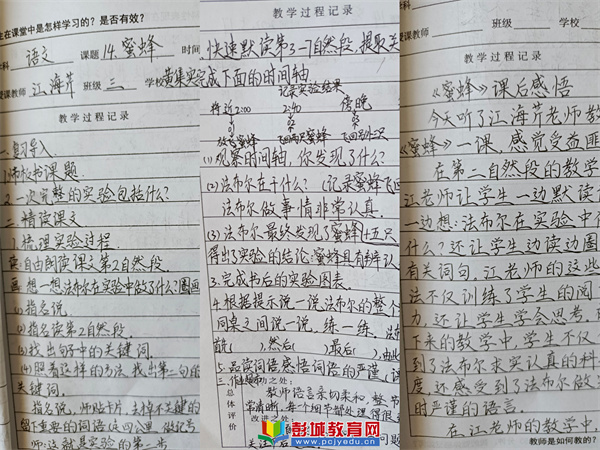 生在课堂中是怎样学习的？是否有效？
语文 课题 14.蜜蜂 时间
授课教师 江海芹 班级 三 学校 黄集实
教学过程记录
一.复习导入
1.师板书课题.
2.一次完整的实验包括什么？
二.精读课文
1.梳理实验过程.
读:自由朗读课文第2自然段.
想一想法布尔在实验中做了什么？圈画
(1)指名说.
(2)指名读第2自然段.
(3)找出句子中的关键词.
(4)照着这样的方法,找出第一句的
关键词.
指名说,师贴卡片,去掉不关键的
留下重要的词语 这四公里,做记号
师:这就是实验的第一步
教学过程记录
快速默读第3-7自然段,提取关
完成下面的时间轴
记录实验结果
将近2:00 2:40 傍晚
放飞蜜蜂 飞回两只蜜蜂
(1)观察时间轴,你发现了什么？
(2)法布尔在干什么？(记录蜜蜂飞回
法布尔做事情非常认真.
(3)法布尔最终发现了蜜蜂十五只
得出了实验的结论:蜜蜂且有辨认
3.完成书后的实验图表.
4.根据提示说一说法布尔的整个
同桌之间说一说,练一练,法布
首先( ),然后( )最后( ),由此
5.品读词语感悟词语的严谨
总体评价
教师语言亲切柔和,整节
常清晰,每个细节都处理得很
教学过程记录
班级 学校
《蜜蜂》课后感悟
今天听了江海芹老师教
《蜜蜂》一课,感觉受益匪
在第二自然段的教学
江老师让学生一边默读
一边想:法布尔在实验中做
什么？还让学生边读边圈
有关词句,江老师的这些
法不仅训练了学生的阅
力,还让学生学会思考,
下来的教学中,学生不仅
到了法布尔求实认真的科
度,还感受到了法布尔做实
时严谨的语言.
在江老师的教学中,
教师是如何教的？
彭城教育网
www.pcjyedu.cn